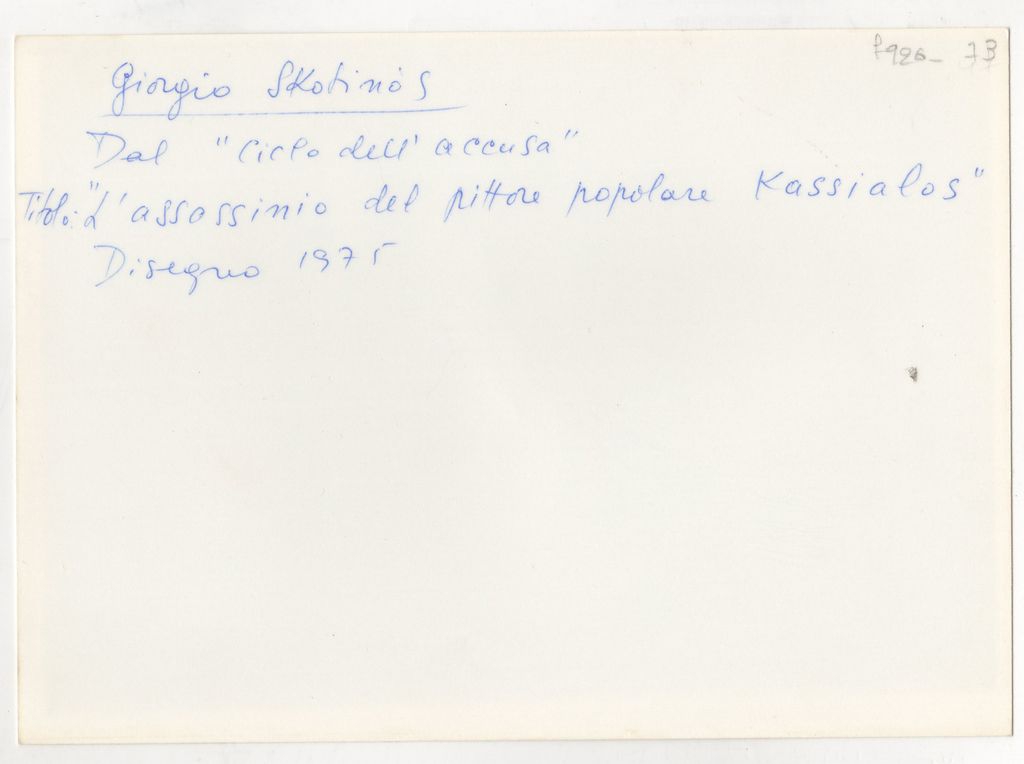 f926- 73
Giorgio Skotinòs
Dal "Ciclo dell'accusa"
Titolo: "L'assassinio del pittore popolare Kassialos"
Disegno 1975